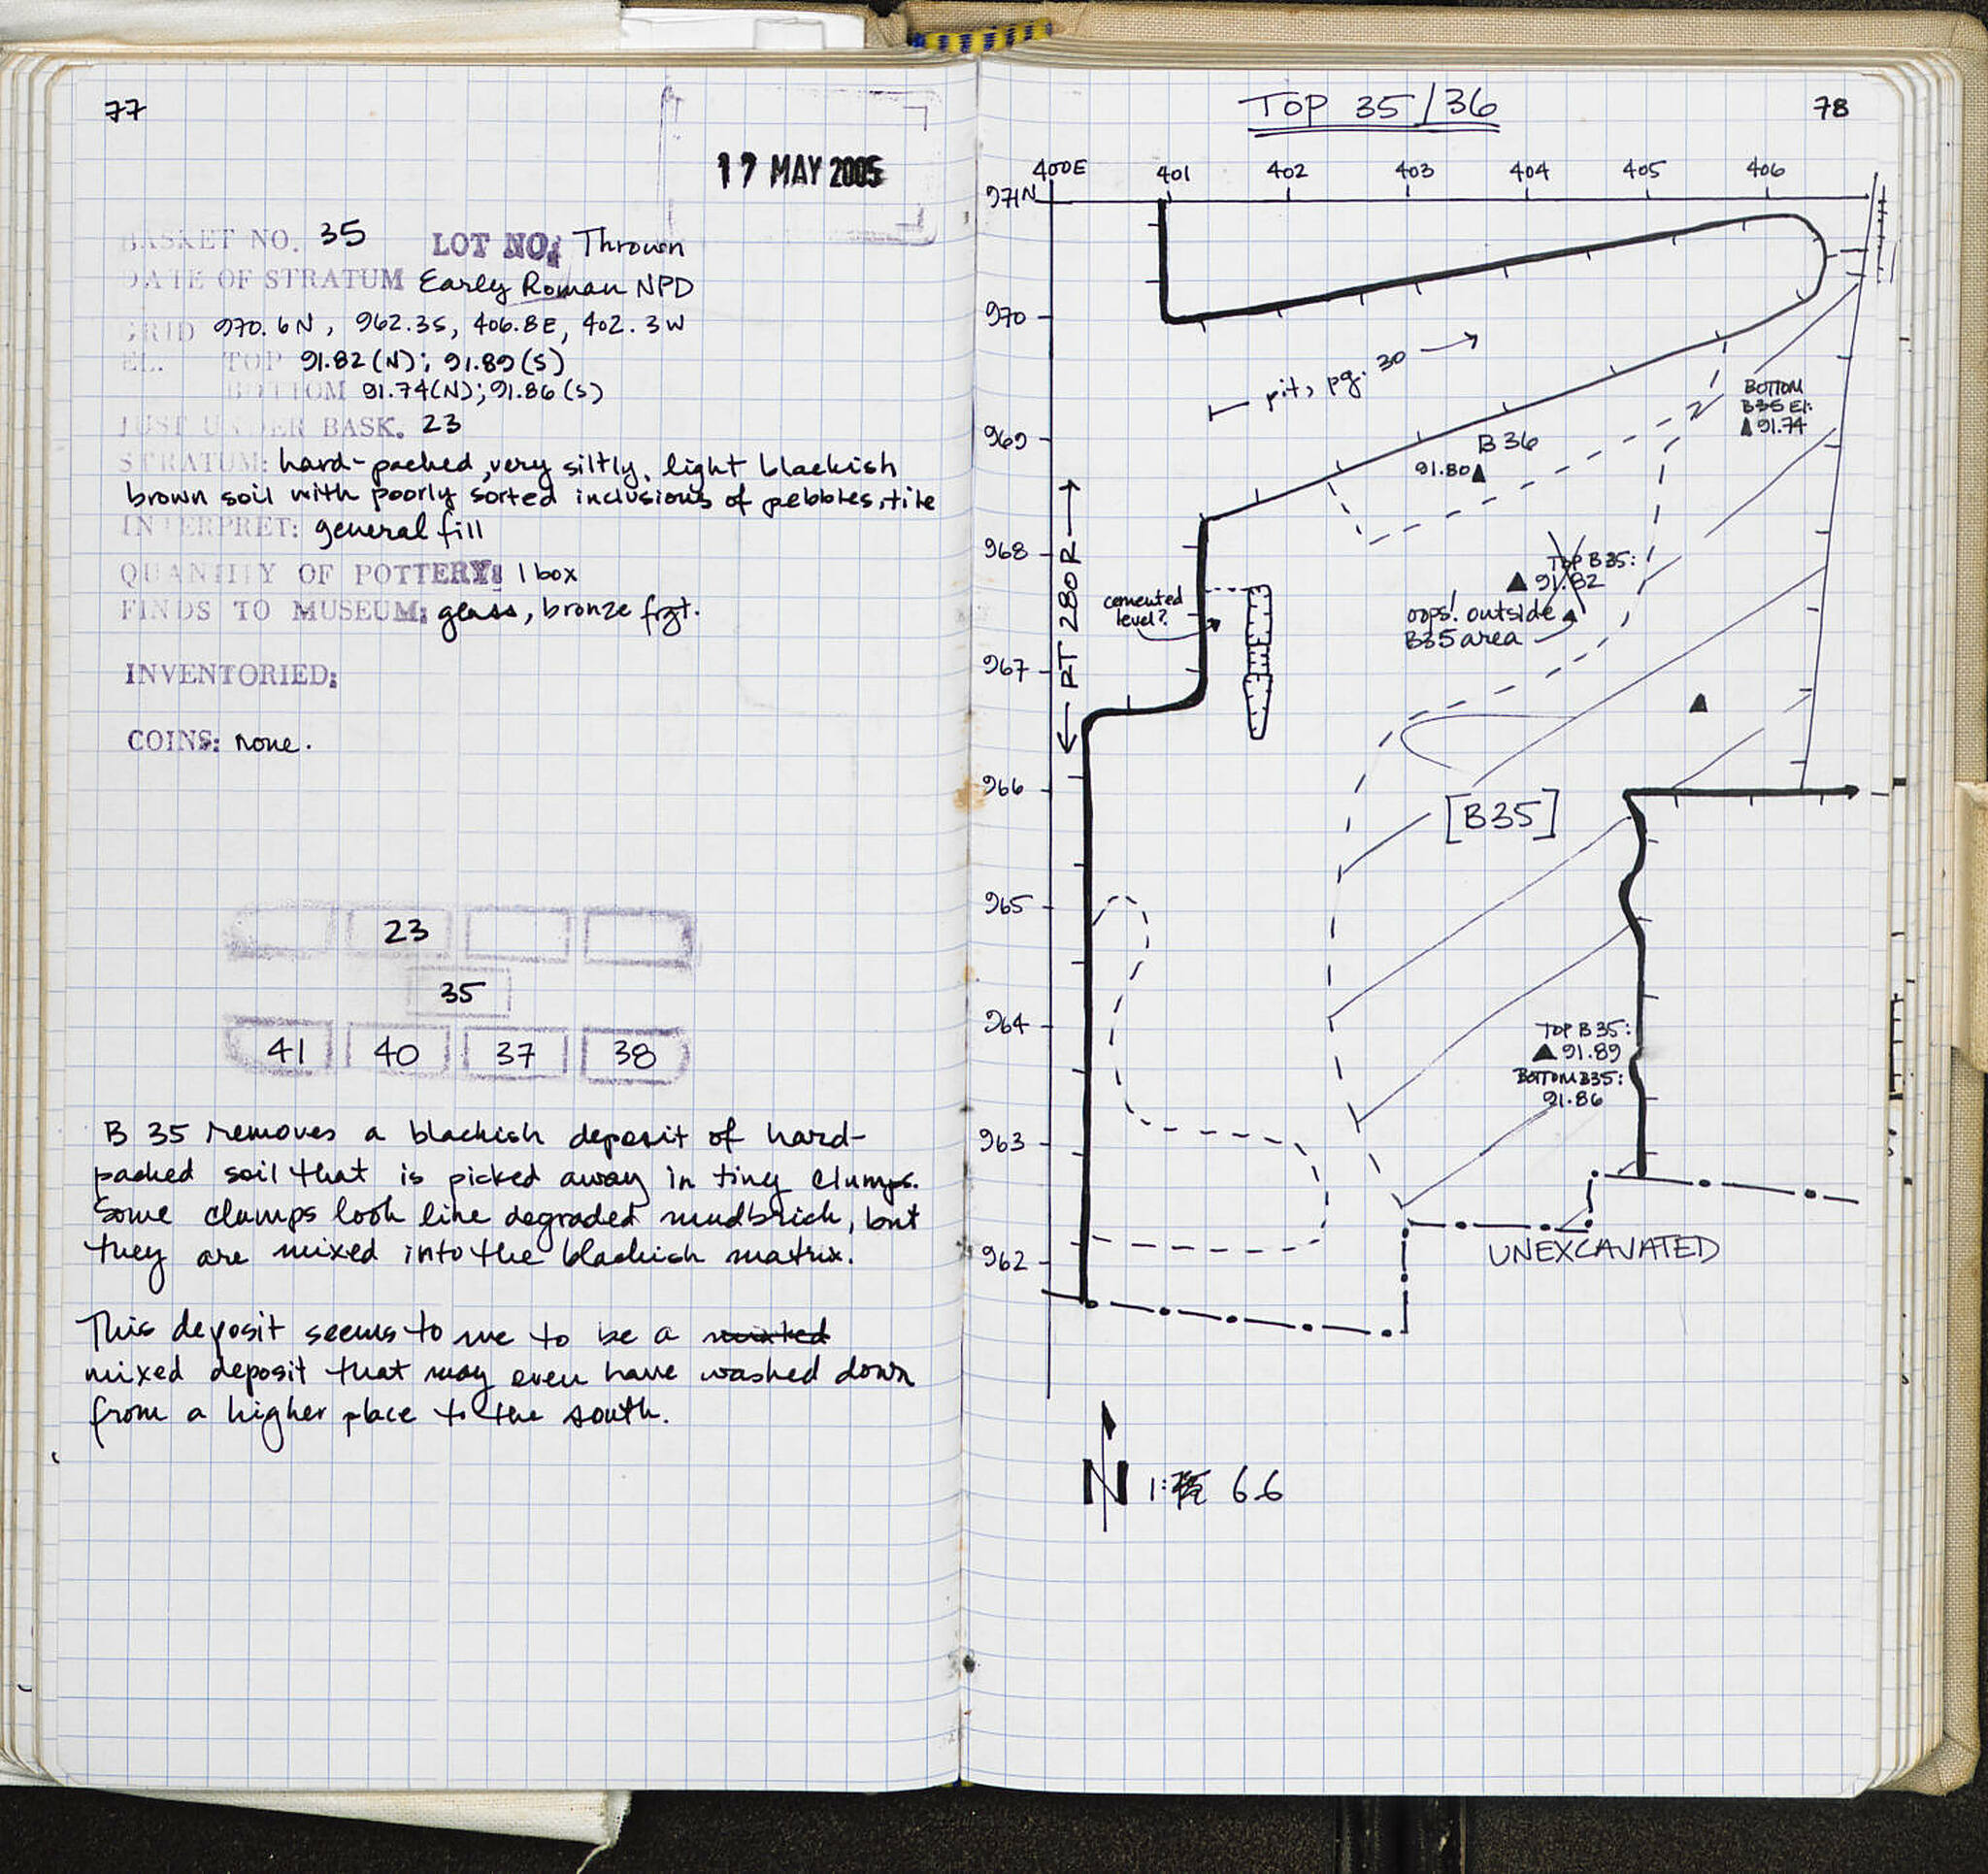 77
17 MAY 2005
BASKET NO. 35 LOT NO: Thrown
DATE OF STRATUM Early Roman NPD
GRID 970.6N, 962.3S, 406.8E, 402.3W
EL. TOP 91.82(N); 91.89(S)
BOTTOM 91.74(N); 91.86(S)
JUST UNDER BASK. 23
STRATUM: hard-packed, very siltly, light blackish
brown soil with poorly sorted inclusions of pebbles, tile
INTERPRET: general fill
QUANTITY OF POTTERY: 1 box
FINDS TO MUSEUM: glass, bronze frgt.
INVENTORIED:
COINS: none.
23
35
41 40 37 38
B 35 removes a blackish deposit of hard-
packed soil that is picked away in tiny clumps.
Some clumps look like degraded mudbrick, but
they are mixed into the blackish matrix.
This deposit seems to me to be a
mixed deposit that may even have washed down
from a higher place to the south.
TOP 35/36
78
400E 401 402 403 404 405 406
971N
970
969
968
967
966
965
964
963
962
pit, pg. 30
BOTTOM
B35 El:
91.74
B 36
91.80
RT 280 R
cemented
level?
TOP B35:
91.82
oops! outside
B35 area
[B35]
TOP B35:
91.89
BOTTOM B35:
91.86
UNEXCAVATED
N 1: 66